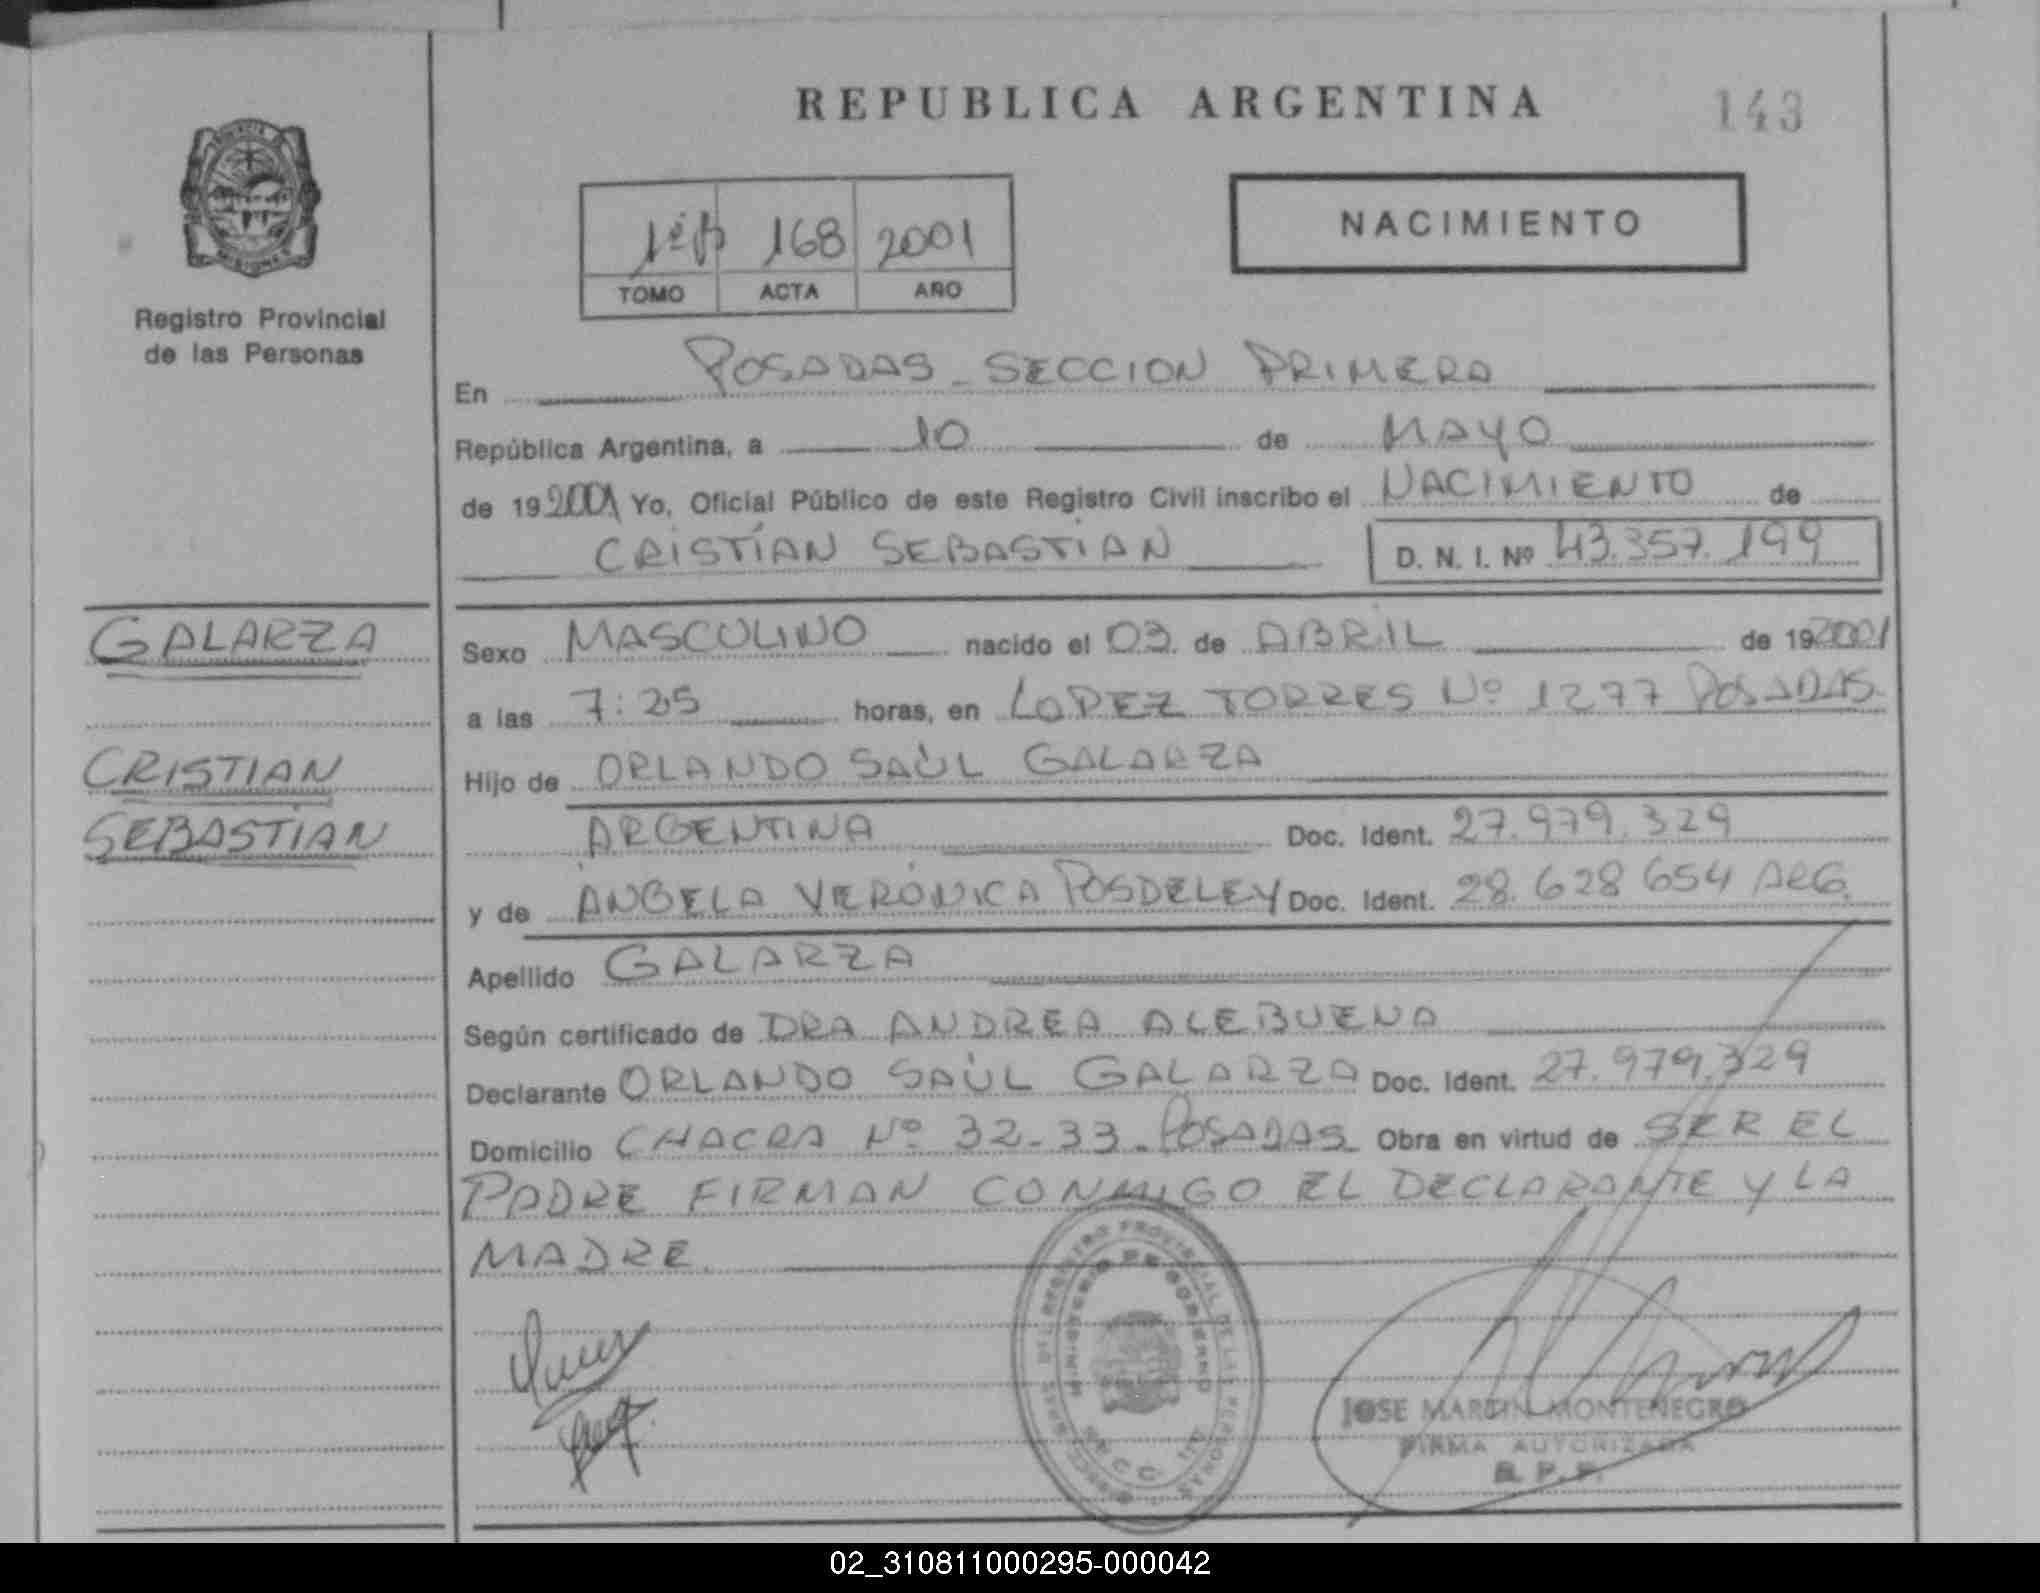 REPUBLICA ARGENTINA
143
MISIONES
Registro Provincial
de las Personas
168 2001
TOMO ACTA AÑO
NACIMIENTO
En POSADAS - SECCION PRIMERA
República Argentina, a 10 de MAYO
de 19 2001 Yo, Oficial Público de este Registro Civil inscribo el NACIMIENTO de
CRISTÍAN SEBASTIAN D. N. I. Nº 43.357.199
GALARZA
CRISTIAN
SEBASTIAN
Sexo MASCULINO nacido el 03 de ABRIL de 19 2001
a las 7:25 horas, en LOPEZ TORRES Nº 1277 POSADAS
Hijo de ORLANDO SAÚL GALARZA
ARGENTINA Doc. Ident. 27.979.329
y de ÁNGELA VERÓNICA POSDELEY Doc. Ident. 28.628 654 ARG.
Apellido GALARZA
Según certificado de DRA ANDREA ALEBUENA
Declarante ORLANDO SAÚL GALARZA Doc. Ident. 27.979.329
Domicilio CHACRA Nº 32-33-POSADAS Obra en virtud de SER EL
PADRE FIRMAN CONMIGO EL DECLARANTE Y LA
MADRE.
REGISTRO PROVINCIAL DE LAS PERSONAS
MINISTERIO DE GOBIERNO
JOSE MARTIN MONTENEGRO
FIRMA AUTORIZADA
R. P. P.
02_310811000295-000042